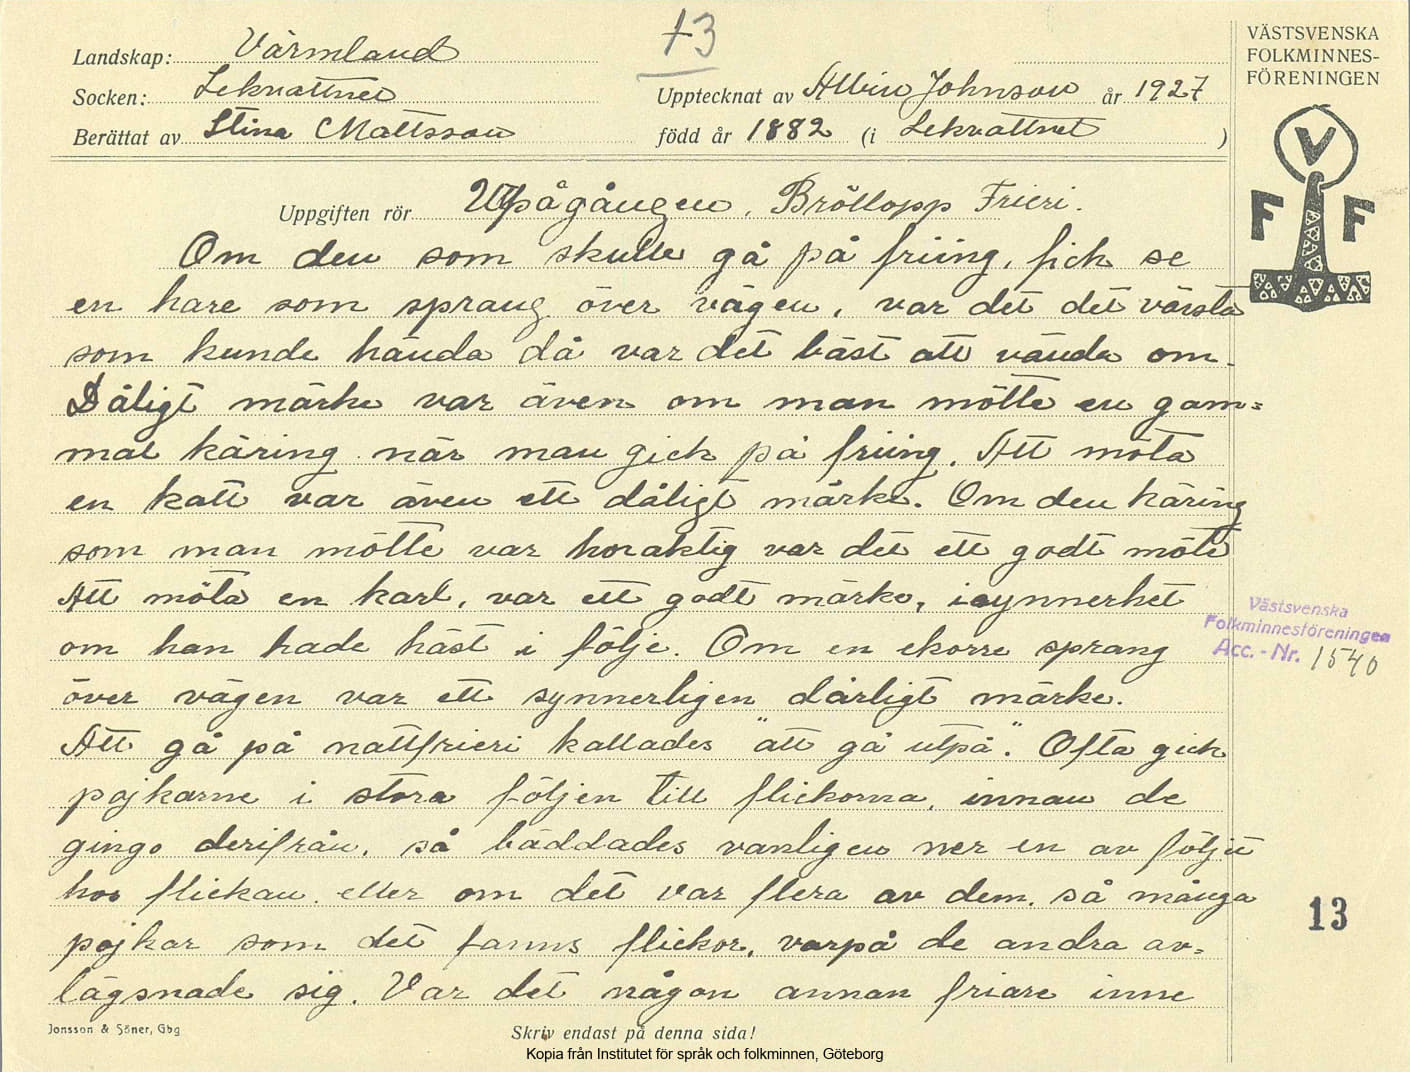 13
Landskap: Värmland
Socken: Lekvattnet
Upptecknat av Albin Johnson år 1927
Berättat av Stina Mattsson född år 1882 (i Lekvattnet )
VÄSTSVENSKA
FOLKMINNES-
FÖRENINGEN
V
F F
Uppgiften rör Utpågången, Bröllopp Frieri.
Om den som skulle gå på friing, fick se
en hare som sprang över vägen, var det det värsta
som kunde hända då var det bäst att vända om.
Dåligt märke var även om man mötte en gam=
mal käring när man gick på friing. Att möta
en katt var även ett dåligt märke. Om den käring
som man mötte var horaktig var det ett godt möte
Att möta en karl, var ett godt märke, isynnerhet
om han hade häst i följe. Om en ekorre sprang
över vägen var ett synnerligen dårligt märke.
Att gå på nattfrieri kallades "att gå utpå". Ofta gick
pojkarne i stora följen till flickorna, innan de
gingo derifrån, så bäddades vanligen ner en av följet
hos flickan eller om det var flera av dem, så många
pojkar som det fanns flickor, varpå de andra av=
lägsnade sig. Var det någon annan friare inne
Västsvenska
Folkminnesföreningen
Acc.-Nr. 1540
13
Jonsson & Söner, Gbg
Skriv endast på denna sida!
Kopia från Institutet för språk och folkminnen, Göteborg